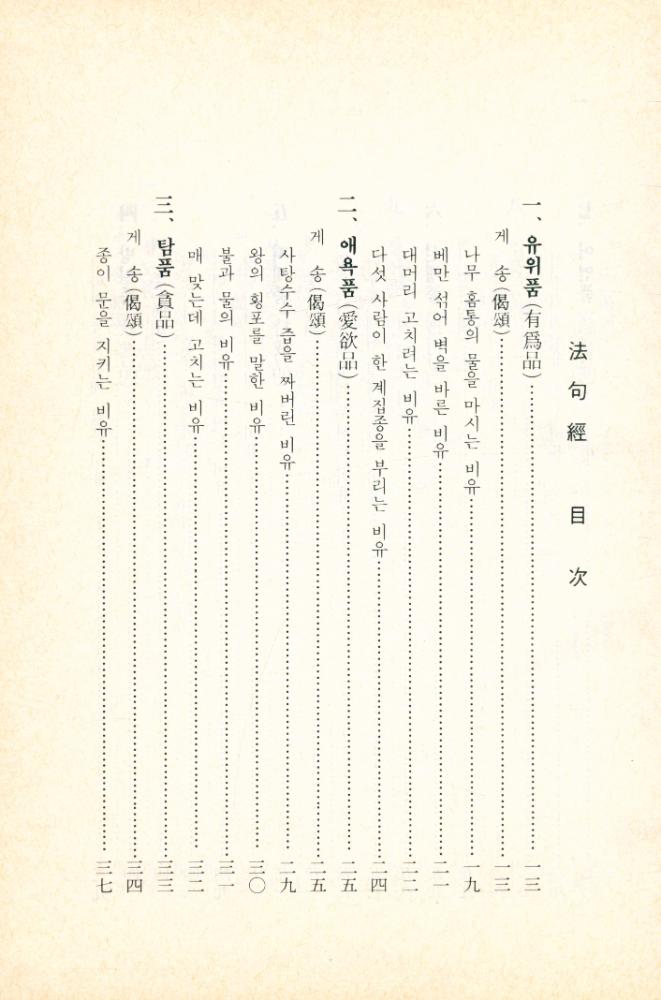 法句經 目次
一、유위품(有爲品)……一三
게 송(偈頌)……一三
나무 홈통의 물을 마시는 비유……一九
베만 섞어 벽을 바른 비유……二一
대머리 고치려는 비유……二二
다섯 사람이 한 계집종을 부리는 비유……二四
二、애욕품(愛欲品)……二五
게 송(偈頌)……二五
사탕수수 즙을 짜버린 비유……二九
왕의 횡포를 말한 비유……三〇
불과 물의 비유……三一
매 맞는데 고치는 비유……三二
三、탐품(貪品)……三三
게 송(偈頌)……三四
종이 문을 지키는 비유……三七